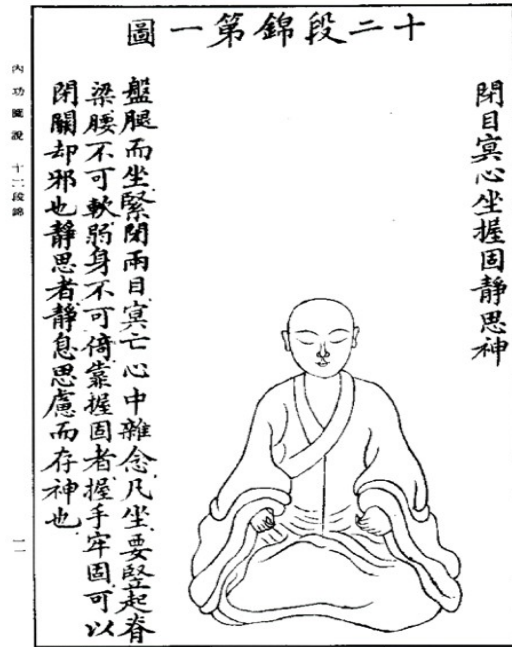 十二段錦第一圖
閉目冥心坐握固靜思神
盤腿而坐緊閉兩目冥亡心中雜念凡坐要竪起脊
梁腰不可軟弱身不可倚靠握固者握手牢固可以
閉關却邪也靜思者靜息思慮而存神也
內功圖說 十二段錦
一一